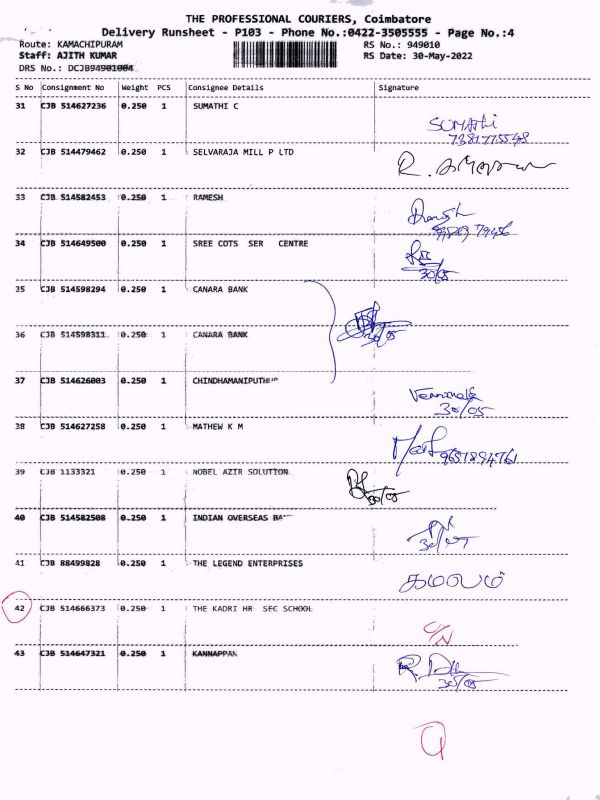 THE PROFESSIONAL COURIERS, Coimbatore
Delivery Runsheet - P103 - Phone No.:0422-3505555 - Page No.:4
Route: KAMACHIPURAM RS No.: 949010
Staff: AJITH KUMAR RS Date: 30-May-2022
DRS No.: DCJB94901004
S No Consignment No Weight PCS Consignee Details Signature
31 CJB 514627236 0.250 1 SUMATHI C
SUMAthi
7381775548
32 CJB 514479462 0.250 1 SELVARAJA MILL P LTD
33 CJB 514582453 0.250 1 RAMESH
34 CJB 514649500 0.250 1 SREE COTS SER CENTRE
30/05
35 CJB 514598294 0.250 1 CANARA BANK
36 CJB 514598311 0.250 1 CANARA BANK
30/05
37 CJB 514626003 0.250 1 CHINDHAMANIPUTHUP
30/05
38 CJB 514627258 0.250 1 MATHEW K M
9657894761
39 CJB 1133321 0.250 1 NOBEL AZIR SOLUTION
30/05
40 CJB 514582508 0.250 1 INDIAN OVERSEAS BA
41 CJB 88499828 0.250 1 THE LEGEND ENTERPRISES
கமலம்
42 CJB 514666373 0.250 1 THE KADRI HR SEC SCHOOL
43 CJB 514647321 0.250 1 KANNAPPAN
30/05